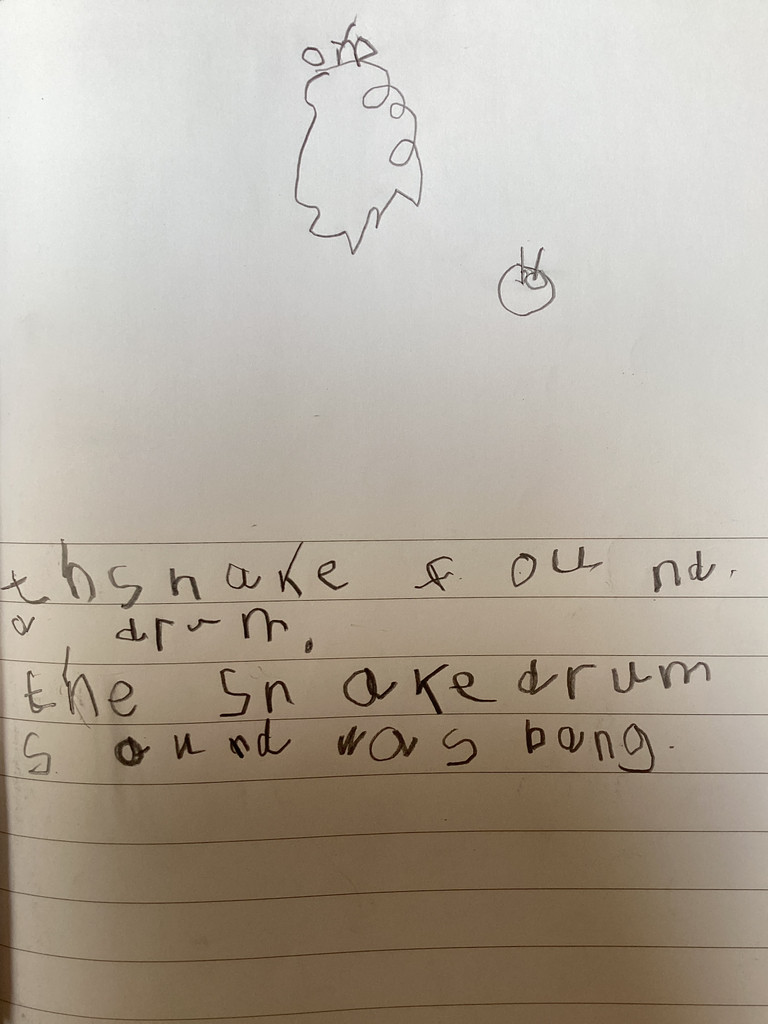 thsnake found.
a drum.
the snake drum
sound was bang.